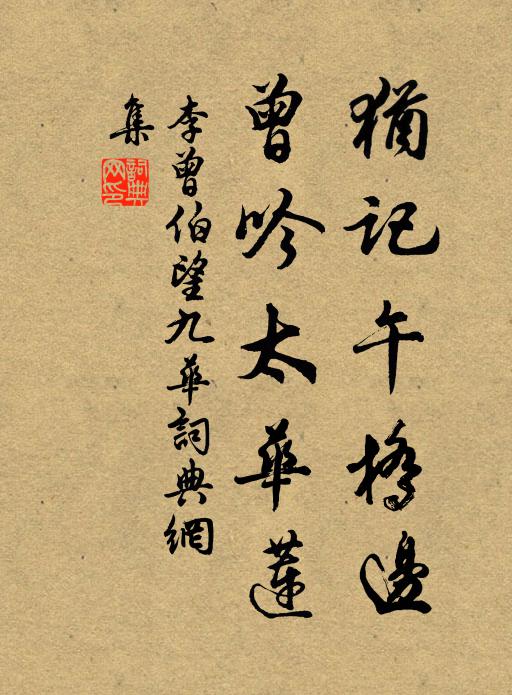 猶記午橋邊
曾吟太華蓮
李曾伯望九華詞典網
集
詞典
网印